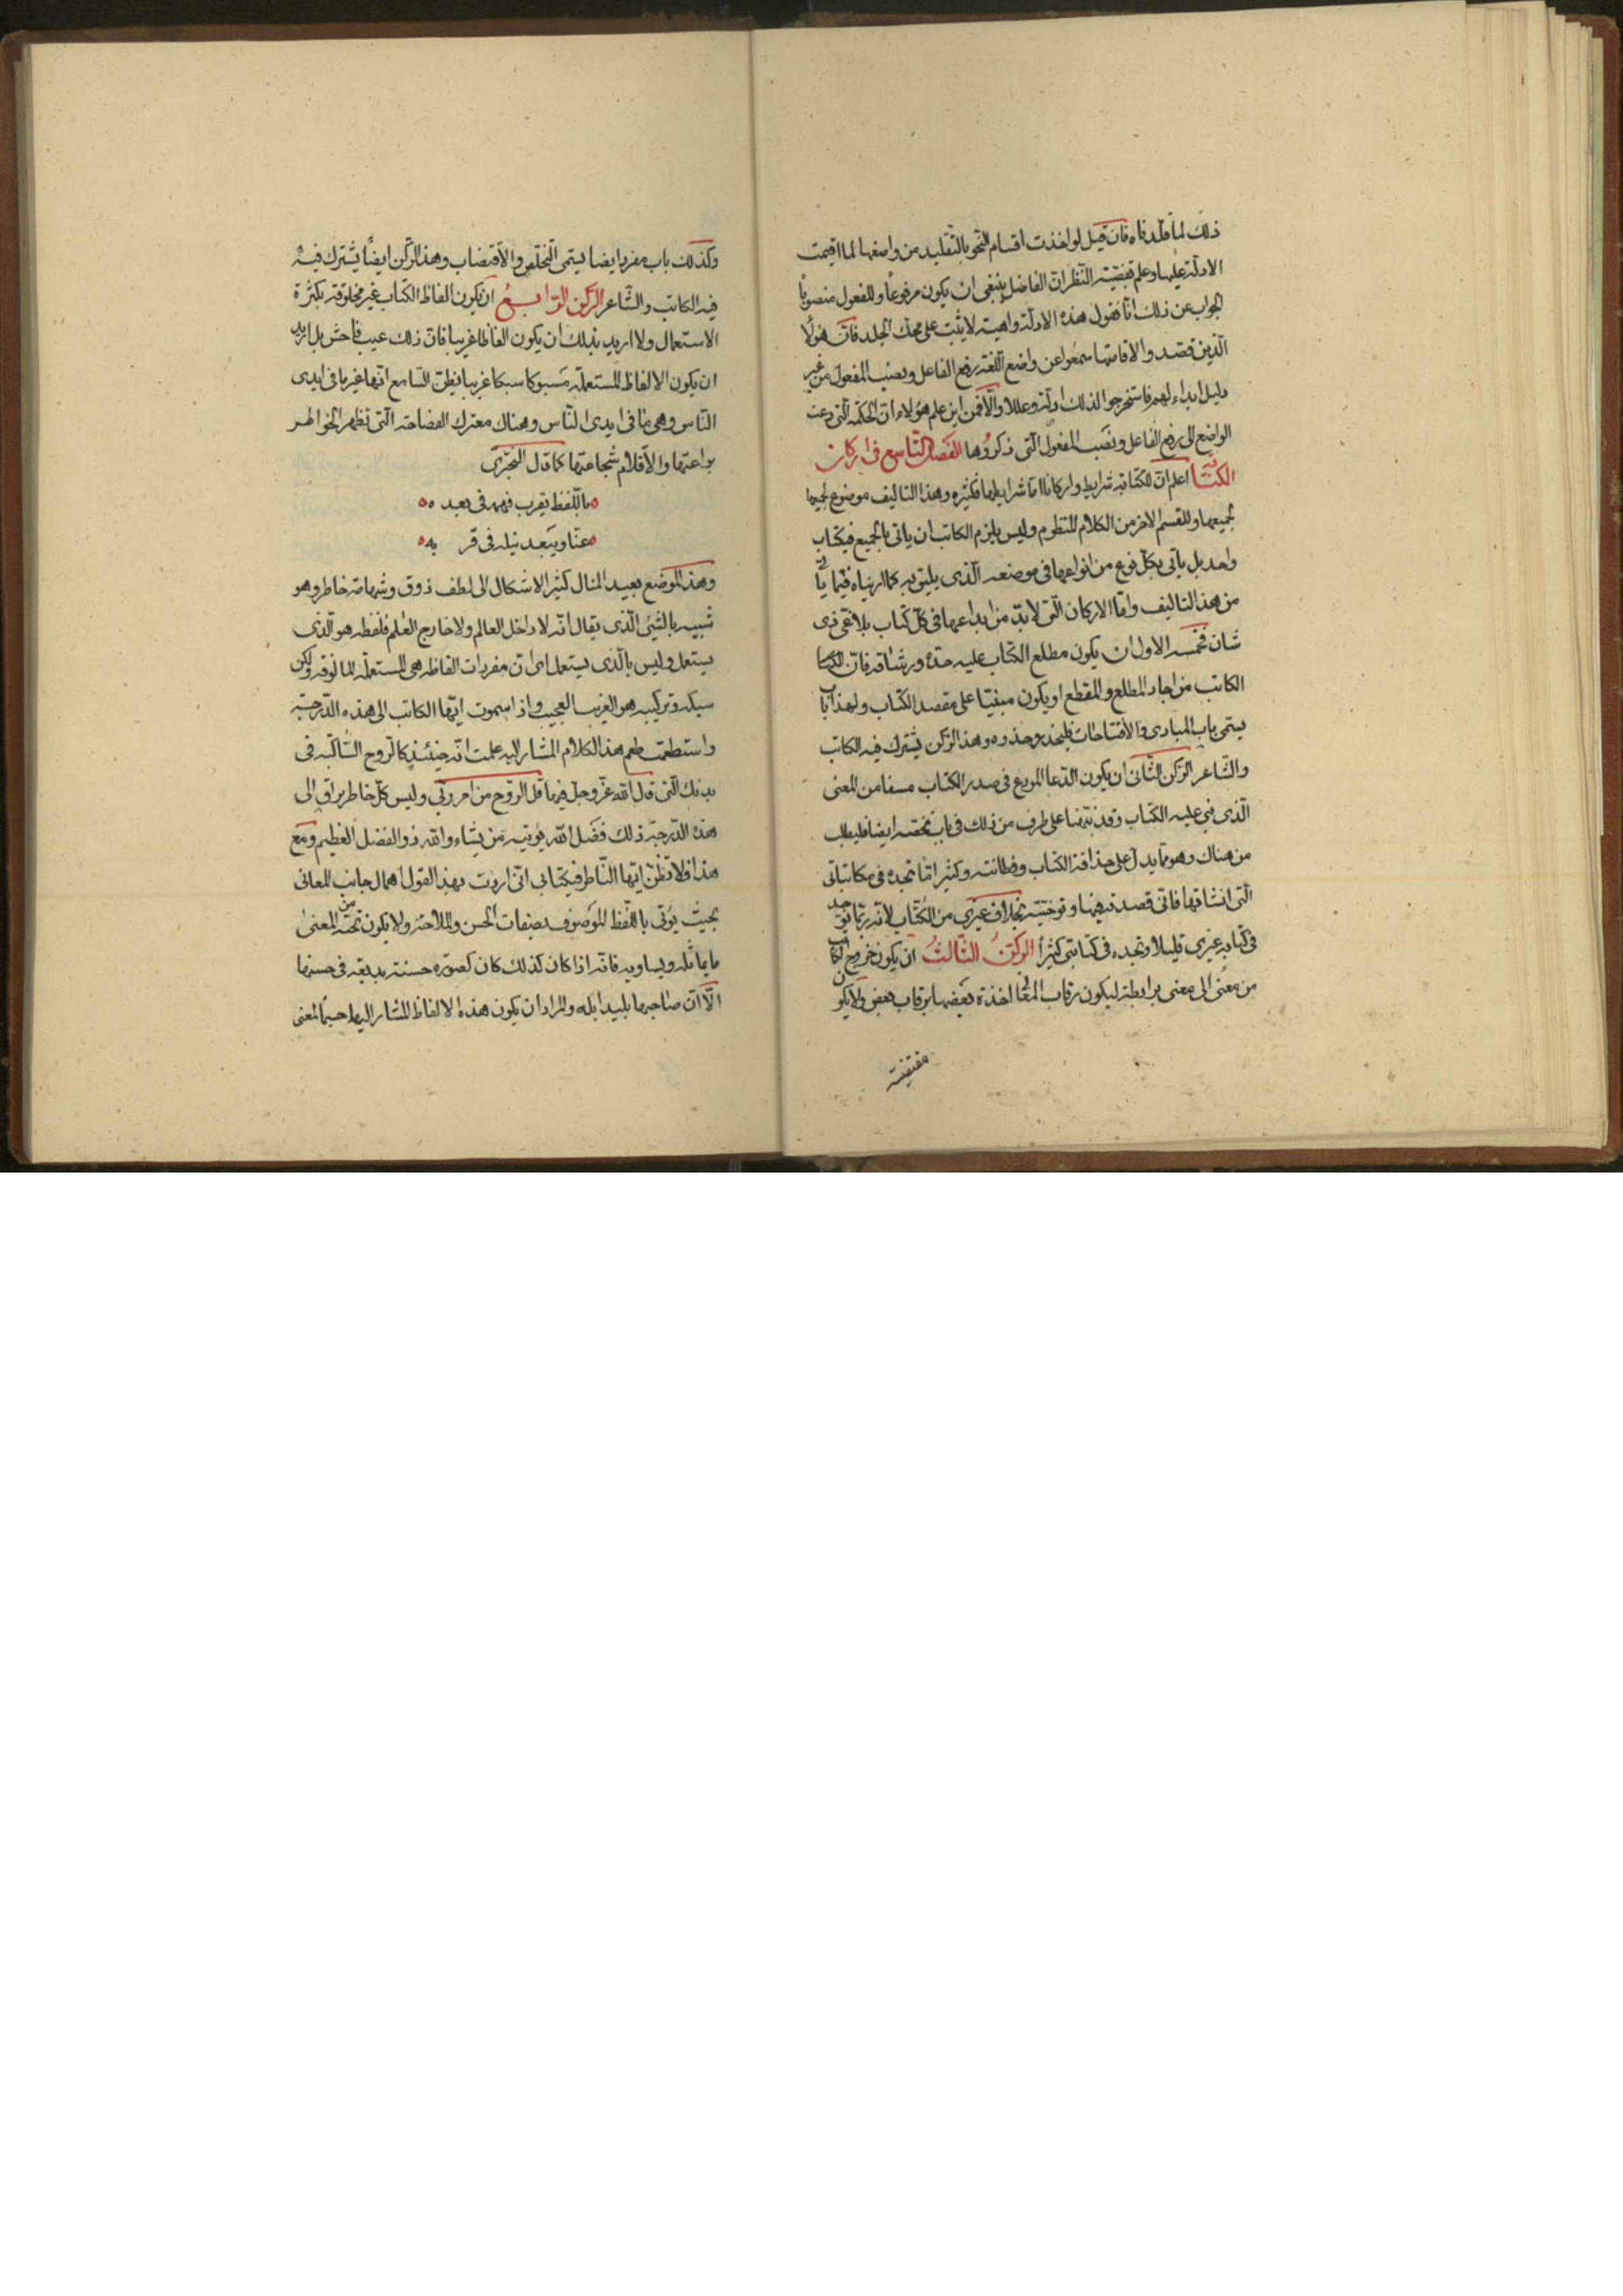 ذلك لما قلدناه فان قيل لو اخذت اقسام النحو بالتقليد من واضعها لما اقيمت
الادلة عليها وعلم بقضية النظر ان الفاضل ينبغى ان يكون مرفوعا والمفعول منصوبا
الجواب عن ذلك انا نقول هذه الادلة واهية لا يثبت على محك الجدل فان هولا
الذين قصدوا الاقامتها سمعوا عن واضع اللغة رفع الفاعل ونصب المفعول من غير
دليل ابداه لهم فاستخرجوا لذلك ادلة وعللا والا فمن اين علم هؤلاء ان الحكمة التى دعت
الواضع الى رفع الفاعل ونصب المفعول التى ذكروها الفصل التاسع فى اركان
الكتابة اعلم ان للكتابة شرايط واركانا اما شرايطها فكثيره وهذا التاليف موضوع لجميعها
لجميعها وللقسم الاخر من الكلام المنظوم وليس يلزم الكاتب ان ياتى بالجميع فى كتاب
واحد بل ياتى بكل نوع من انواعها فى موضعه الذى يليق به كما اريناه فيما ياتى
من هذا التاليف واما الاركان التى لا بد من ايداعها فى كل كتاب بلاغى ذى
شان فخمسه الاول ان يكون مطلع الكتاب عليه حدة ورشاقه فان الكتا
الكاتب من اجاد المطلع والمقطع او يكون مبنيا على مقصد الكتاب ولهذا باب
يسمى باب المبادى والافتتاحات فليحذ حذوه وهذا الركن يشترك فيه الكاتب
والشاعر الركن الثانى ان يكون الدعا المودع فى صدر الكتاب مسفا من المعنى
الذى بنى عليه الكتاب وقد نبهنا على طرف من ذلك فى باب يخصه ايضا فليطلب
من هناك وهو مما يدل على حذاقة الكتاب وفطانته وكثيرا ما تجده فى مكاتباتى
التى انشاتها فانى قصدته فيها وتوخيته بخلاف غيرى من الكتاب لانه ربما يوجد
فى كتابه غيرى قليلا وتجده فى كتابتى كثيرا الركن الثالث ان يكون خروج الكاتب
من معنى الى معنى برابطة ليكون رقاب المعانى اخذة بعضها برقاب بعض ولا يكون
مقتضبة
وكذلك باب مفرد ايضا يسمى التخلص والاقتضاب وهذا الركن ايضا يشترك فيه
فيه الكاتب والشاعر الركن الرابع ان يكون الفاظ الكتاب غير مخلوقة بكثرة
الاستعمال ولا اريد بذلك ان يكون الفاظا غريبا فان ذلك عيب فاحش بل اريد
ان يكون الالفاظ المستعملة مسبوكا سبكا غريبا يظن السامع انها غير ما فى ايدى
الناس وهى مما فى ايدى الناس وهناك معترك الفصاحة التى تظهر الخواطر
براعتها والاقلام شجاعتها كما قال البحترى
باللفظ يقرب فهمه فى بعده
عنا ويبعد نيله فى قربه
وهذا الموضع بعيد المنال كثير الاشكال الى لطف ذوق وشهامة خاطر وهو
شبيه بالشئ الذى يقال انه لا داخل العالم ولا خارج العلم فلفظه هو الذى
يستعمل وليس بالذى يستعمل اى ان مفردات الفاظه هى المستعملة المالوفة ولكن
سبكه وتركيبه هو الغريب العجيب واذا سموت ايها الكاتب الى هذه الدرجة
واستطعمت طعم هذا الكلام المشار اليه علمت انه حينئذ كالروح الساكنه فى
بدنك التى قال الله عز وجل فيها قل الروح من امر ربى وليس كل خاطر براق الى
هذه الدرجة ذلك فضل الله يؤتيه من يشاء والله ذو الفضل العظيم ومع
هذا فلا تظن ايها الناظر فى كتابى انى اردت بهذا القول اهمال جانب المعانى
بحيث يؤتى باللفظ الموصوف بصفات الحسن والملاحة ولا يكون تحته من المعنى
ما يماثله ويساويه فانه اذا كان كذلك كان كصوره حسنة بديعة فى حسنها
الا ان صاحبها بليد ابله والمراد ان يكون هذه الالفاظ المشار اليها جسما لمعنى